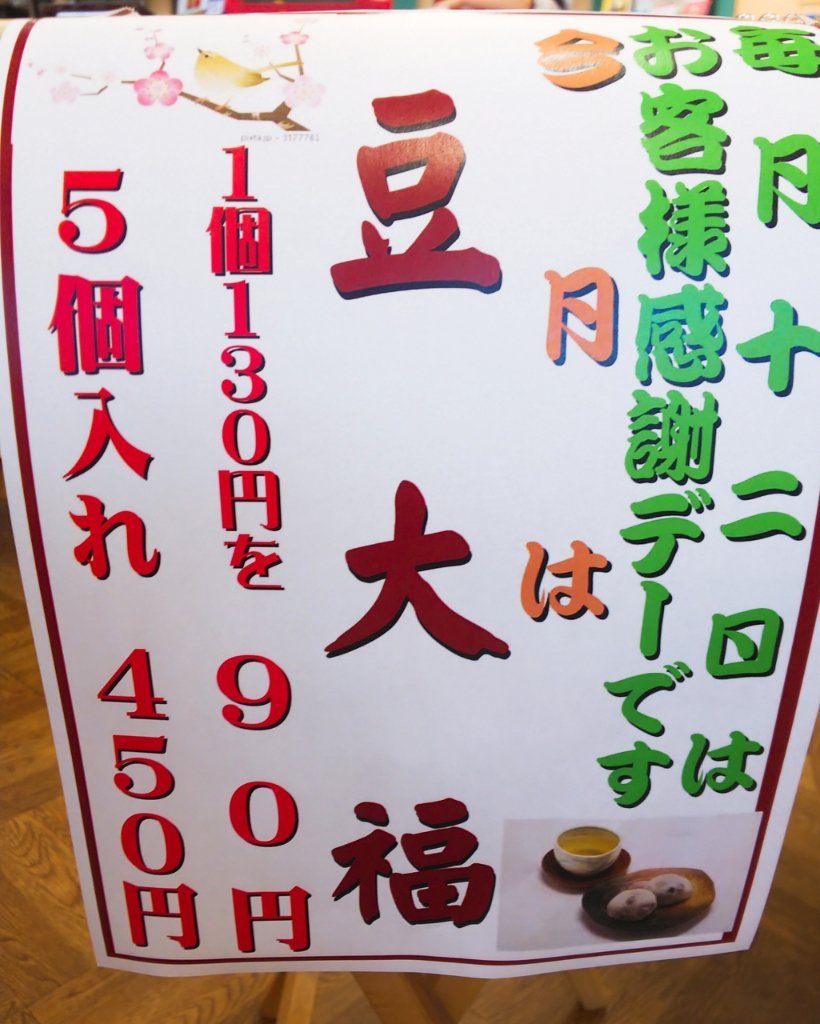 毎月十二日は
お客様感謝デーです
今月は
豆大福
1個130円を 90円
5個入れ 450円
pixta.jp - 3177781